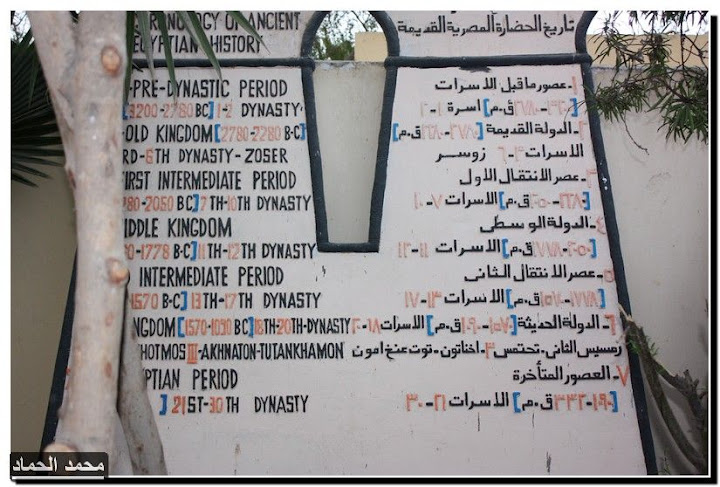 RONOLOGY OF ANCIENT
EGYPTIAN HISTORY
-PRE-DYNASTIC PERIOD
[3200-2780 BC] 1-2 DYNASTY
-OLD KINGDOM [2780-2280 B.C]
RD-6TH DYNASTY-ZOSER
FIRST INTERMEDIATE PERIOD
280-2050 BC] 7TH-10TH DYNASTY
IDDLE KINGDOM
50-1778 B-C] 11TH-12TH DYNASTY
D INTERMEDIATE PERIOD
-1570 B-C] 13TH-17TH DYNASTY
NGDOM [1570-1090 BC] 18TH-20TH-DYNASTY
HOTMOS III-AKHNATON-TUTANKHAMON
PTIAN PERIOD
] 21ST-30TH DYNASTY
تاريخ الحضارة المصرية القديمة
١- عصور ماقبل الاسرات
ق.م] اسرة ١-٢
٢. الدولة القديمة [٢٧٨٠-٢٢٨٠ ق.م]
الاسرات ٣-٦ زوسر
٣- عصر الانتقال الاول
[٢٢٨٠-٢٠٥٠ ق.م] الاسرات ٧-١٠
٤- الدولة الوسطى
[٢٠٥٠-١٧٧٨ ق.م] الاسرات ١١-١٢
٥- عصر الانتقال الثانى
[١٧٧٨-١٥٧٠ ق.م] الاسرات ١٣-١٧
٦- الدولة الحديثة [١٥٧٠-١٠٩٠ ق.م] الاسرات ١٨-٢٠
رمسيس الثانى-تحتمس ٣-اخناتون-توت عنخ امون
٧- العصور المتأخرة
[١٠٩٠-٣٣٢ ق.م] الاسرات ٢١-٣٠
محمد الحماد